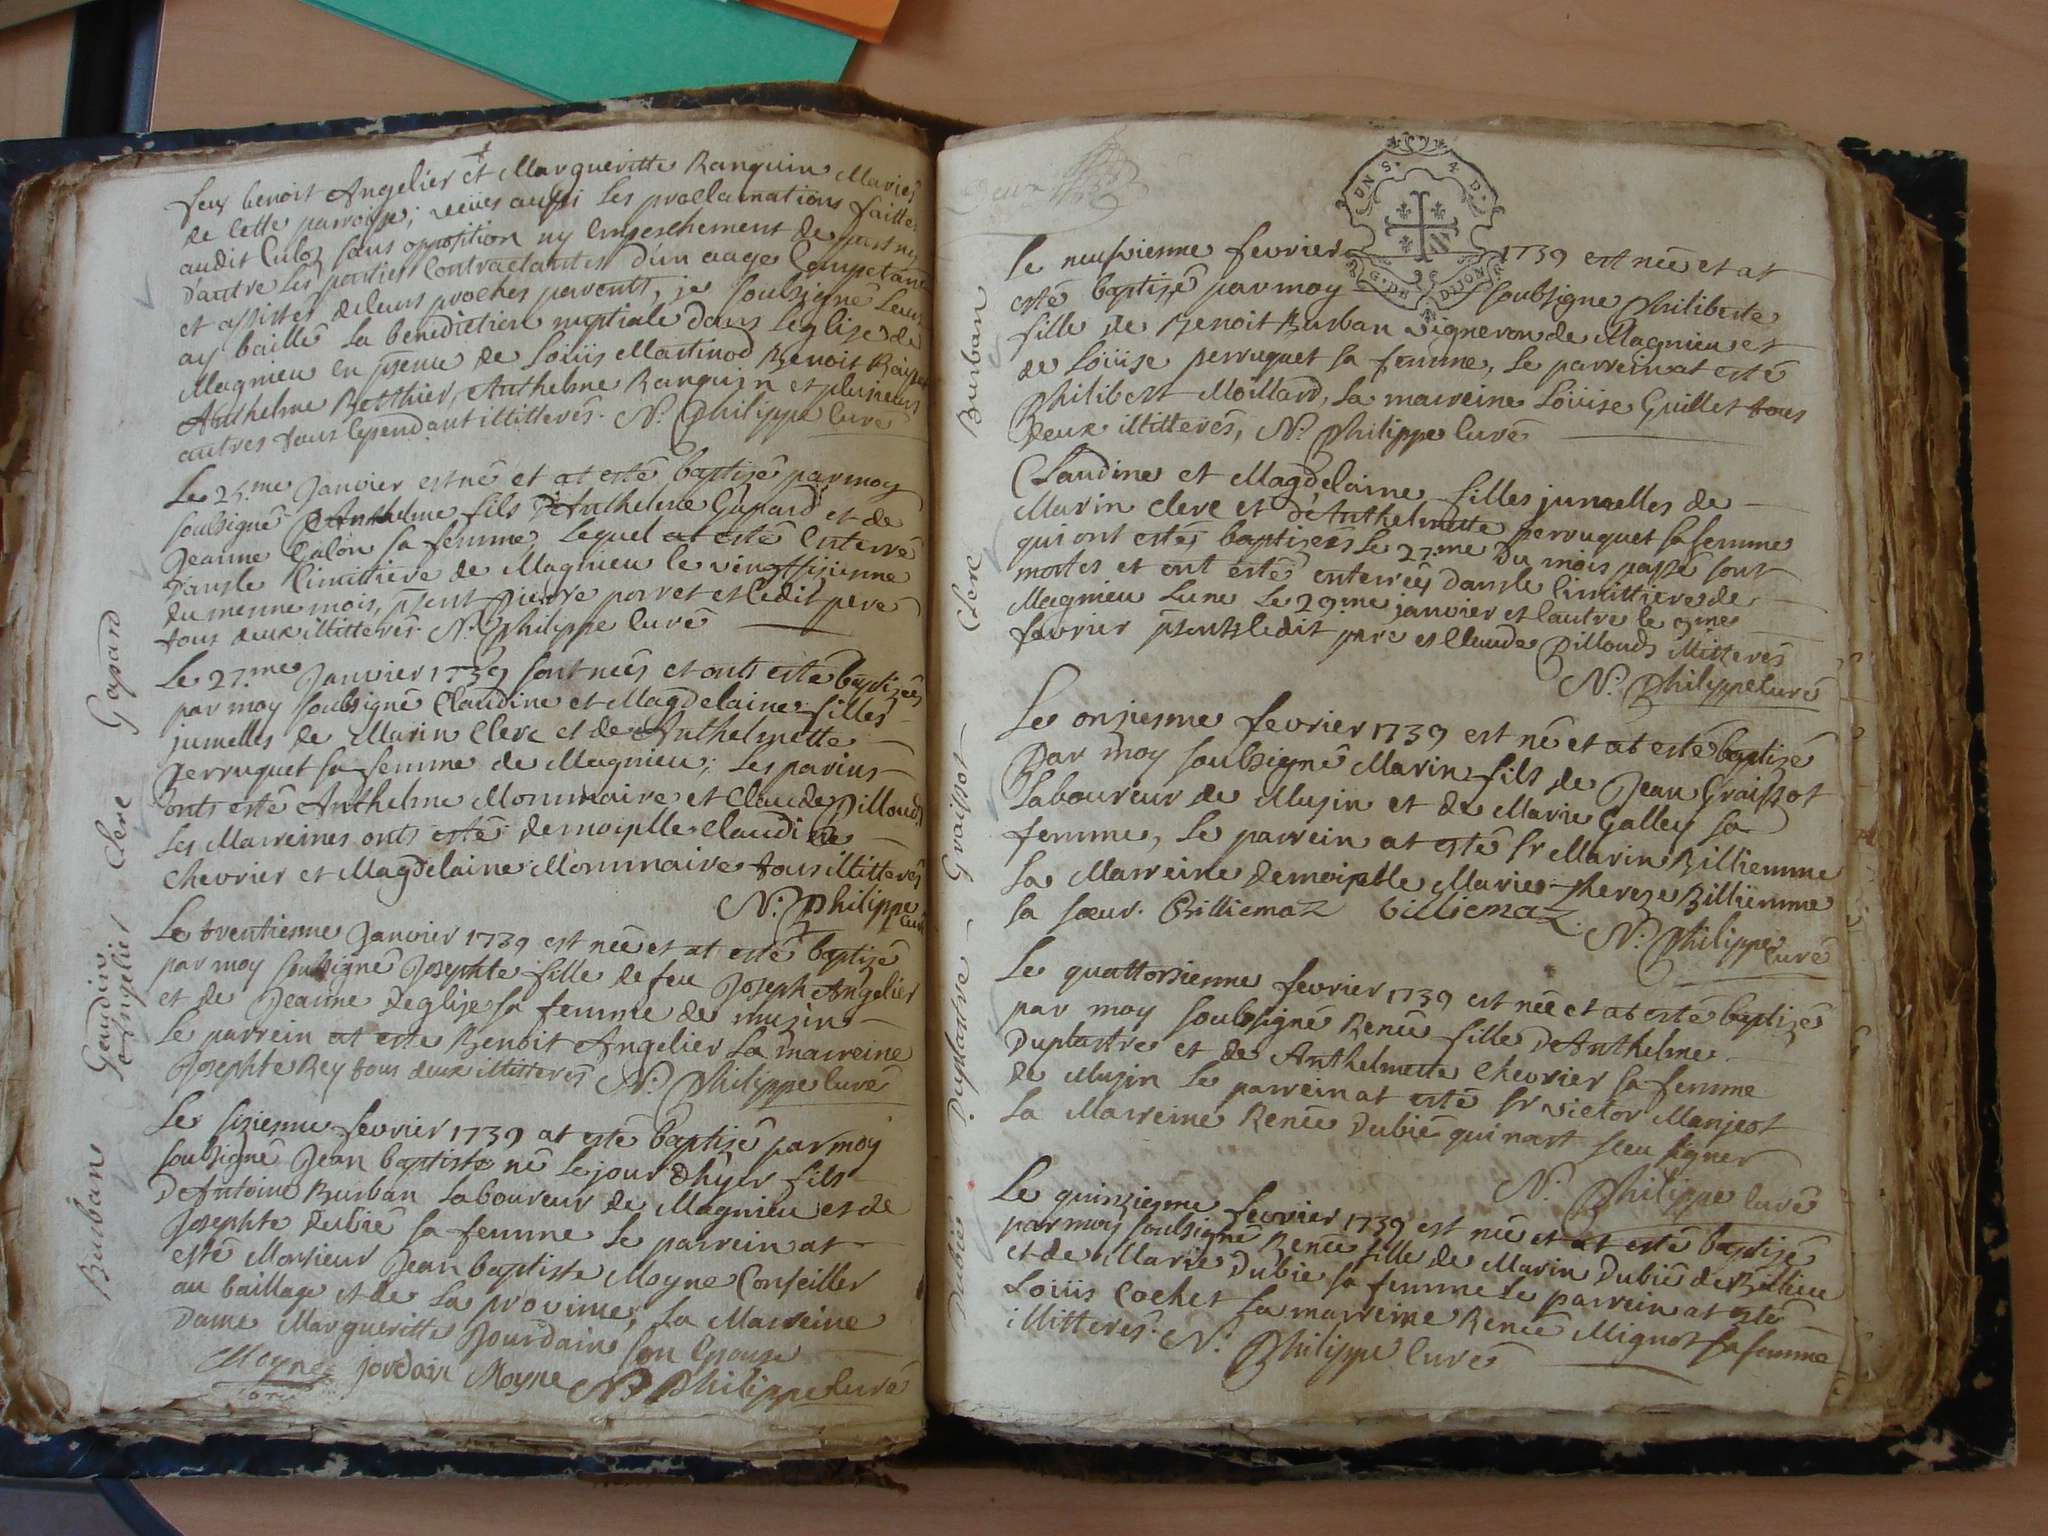 feu benoit Angelier et Margueritte Ranquin Maries
de cette parroisse; veües aussi les proclamations faittes
audit Culoz sans opposition ny empeschement de part ny
d'autre les parties Contractantes d'un aage Competant
et assistés de leurs proches parents, je soubsigné leur
ay baillé la benediction nuptiale dans leglise de
Magnieu en psence de Loüis Martinod Benoit
Anthelme Berthier, Anthelme Ranquin et plusieurs
autres tous cependant illitterés. N. Philippe Curé
Le 25.me Janvier est né et at esté baptisé par moy
soubsigné Anthelme fils D'Anthelme Goiard et de
Jeanne Calon sa femme, Lequel at esté Enterré
dans le Cimittiere de Magnieu le vingtsixienne
du mesme mois, psent pierre porret et ledit pere
tous deux illitterés. N. Philippe Curé
Le 27.me Janvier 1739 sont nées et onts esté baptizées
par moy soubsigné Claudine et Magdelaine filles
jumelles de Marin Clerc et de Anthelmette
perruquet sa femme de Magnieu; Les parins
onts esté Anthelme Mommaire et Claude Pilloud,
Les Marreines onts esté demoiselle Claudine
Chevrier et Magdelaine Mommaire tous illitterés
N. Philippe Curé
Le trentienne Janvier 1739 est née et at esté baptisé
par moy soubsigné Josephte fille de feu Joseph Angelier
et de Jeanne Deglise sa femme de muzin
Le parrein at esté Benoit Angelier La marreine
Josephte Rey tous deux illitterés N. Philippe Curé
Le sizienne fevrier 1739 at esté baptisé par moy
soubsigné Jean baptiste né le jour d'hyer fils
D'Antoine Burban Laboureur de Magnieu et de
Josephte Dubié sa femme Le parrein at
esté Monsieur Jean baptiste Moyne Conseiller
au baillage et de la province, La Marreine
Dame Margueritte Jourdain son Epouse
Moyne jordain Moyne N. Philippe Curé
Goiard
Clerc
Gaudin
Angelier
Burban
UNS. 4 D.
G. DE DIJON
Le neufvienne fevrier 1739 est née et at
esté baptizé par moy soubsigné Philiberte
fille de Benoit Burban vigneron de Magnieu et
de Loüise perruquet sa femme, Le parrein at esté
Philibert Moillard, La marreine Loüise Guillet tous
deux illitterés, N. Philippe Curé
Claudine et Magdelaine filles jumelles de
Marin Clerc et D'Anthelmette perruquet sa femme
qui ont estés baptizées le 27.me du mois passé sont
mortes et ont esté enterrées dans le Cimittiere de
Magnieu Lune Le 29.me janvier et l'autre le 9.me
fevrier psents ledit pere et Claude Pilloud illitterés
N. Philippe Curé
Le onzienne fevrier 1739 est né et at esté baptisé
Par moy soubsigné Marin fils de Jean Graissot
Laboureur de Muzin et de Marie Galley sa
femme, Le parrein at esté Sr Marin Billiemme
La Marreine demoiselle Marie thereze Billiemme
sa soeur. Billiemaz billiemaz
N. Philippe Curé
Le quattorzienne fevrier 1739 est née et at esté baptizé
par moy soubsigné Renée fille D'Anthelme
Duplastre et de Anthelmette Chevrier sa femme
de Muzin Le parrein at esté Sr victor Manjeot
La Marreine Renée Dubié qui n'at sceu signer
N. Philippe Curé
Le quinzienne fevrier 1739 est née et at esté baptizé
par moy soubsigné Renée fille de Marin Dubié de Billieu
et de Marie Dubie sa femme Le parrein at esté
Loüis Cochet La marreine Renée Mignot sa femme
illitterés. N. Philippe Curé
Burban
Clerc
Graissot
Duplastre
Dubié